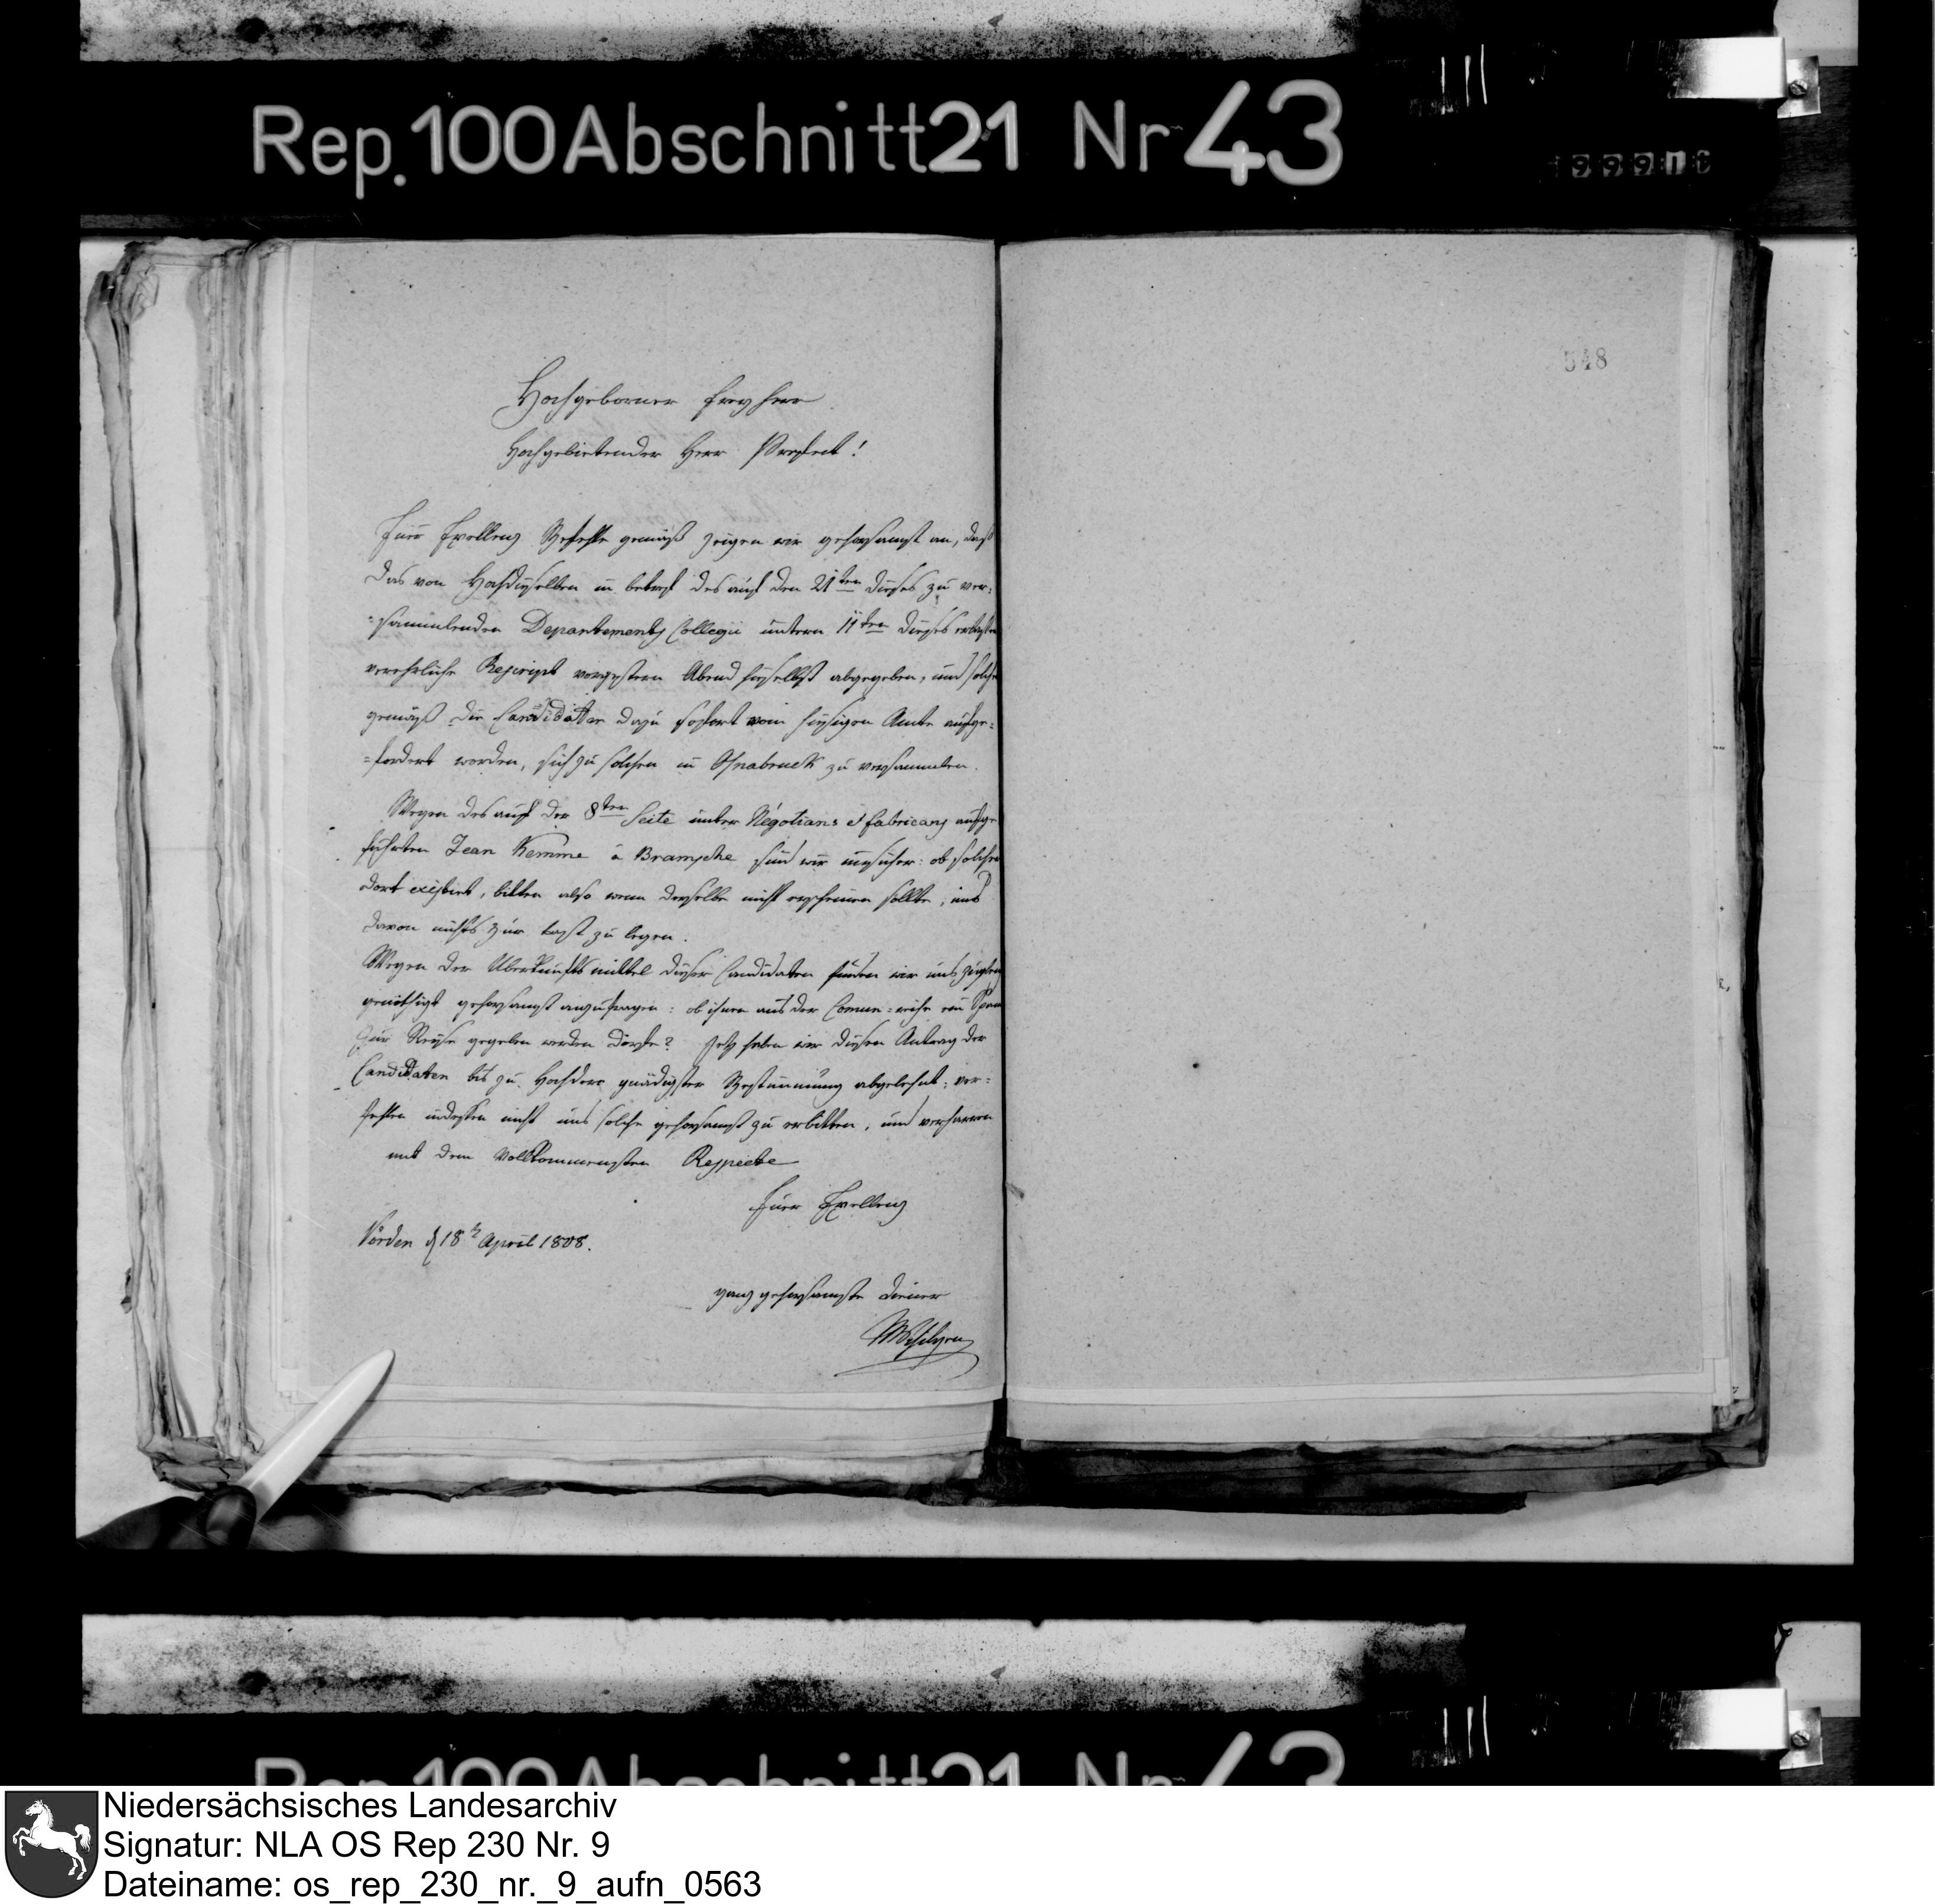 Rep. 100 Abschnitt 21 Nr 43
548
Hochgeborner Freyherr
Hochgebietender Herr Praefect!
Euer Excellenz Befehle gemäß zeigen wir gehorsamst an, daß
das von Hochdieselben in betref des auf den 21ten dieses zu ver-
-sammlenden Departements Collegii unterm 11ten dieses
verehrliche Rescript vorgestern Abend hieselbst abgegeben, und solchem
gemäß die Candidaten dazu sofort vom hiesigen Amte aufge-
-fordert worden, sich zu solchen in Osnabruck zu versammlen.
Wegen des auf der 8ten Seite unter Négotians et fabricans aufge
führten Jean Kemme à Bramsche sind wir unsicher: ob solcher
dort existirt, bitten also wenn derselbe nicht erscheinen sollte, uns
davon nichts zur Last zu legen.
Wegen der Uberkunftsmittel dieser Candidaten finden wir uns zugleich
genöthigt gehorsamst anzufragen: ob ihnen aus der Comun-reihe ein
zur Reise gegeben werden dürfe? Jetz haben wir diesen Antrag der
Candidaten bis zu Hochdero gnädigster Bestimmung abgelehnt; ver-
fehlen indessen nicht uns solche gehorsamst zu erbitten, und verharren
mit dem vollkommensten Respecte
Euer Excellenz
Vörden d 18t April 1808.
ganz gehorsamste Diener
Niedersächsisches Landesarchiv
Signatur: NLA OS Rep 230 Nr. 9
Dateiname: os_rep_230_nr._9_aufn_0563